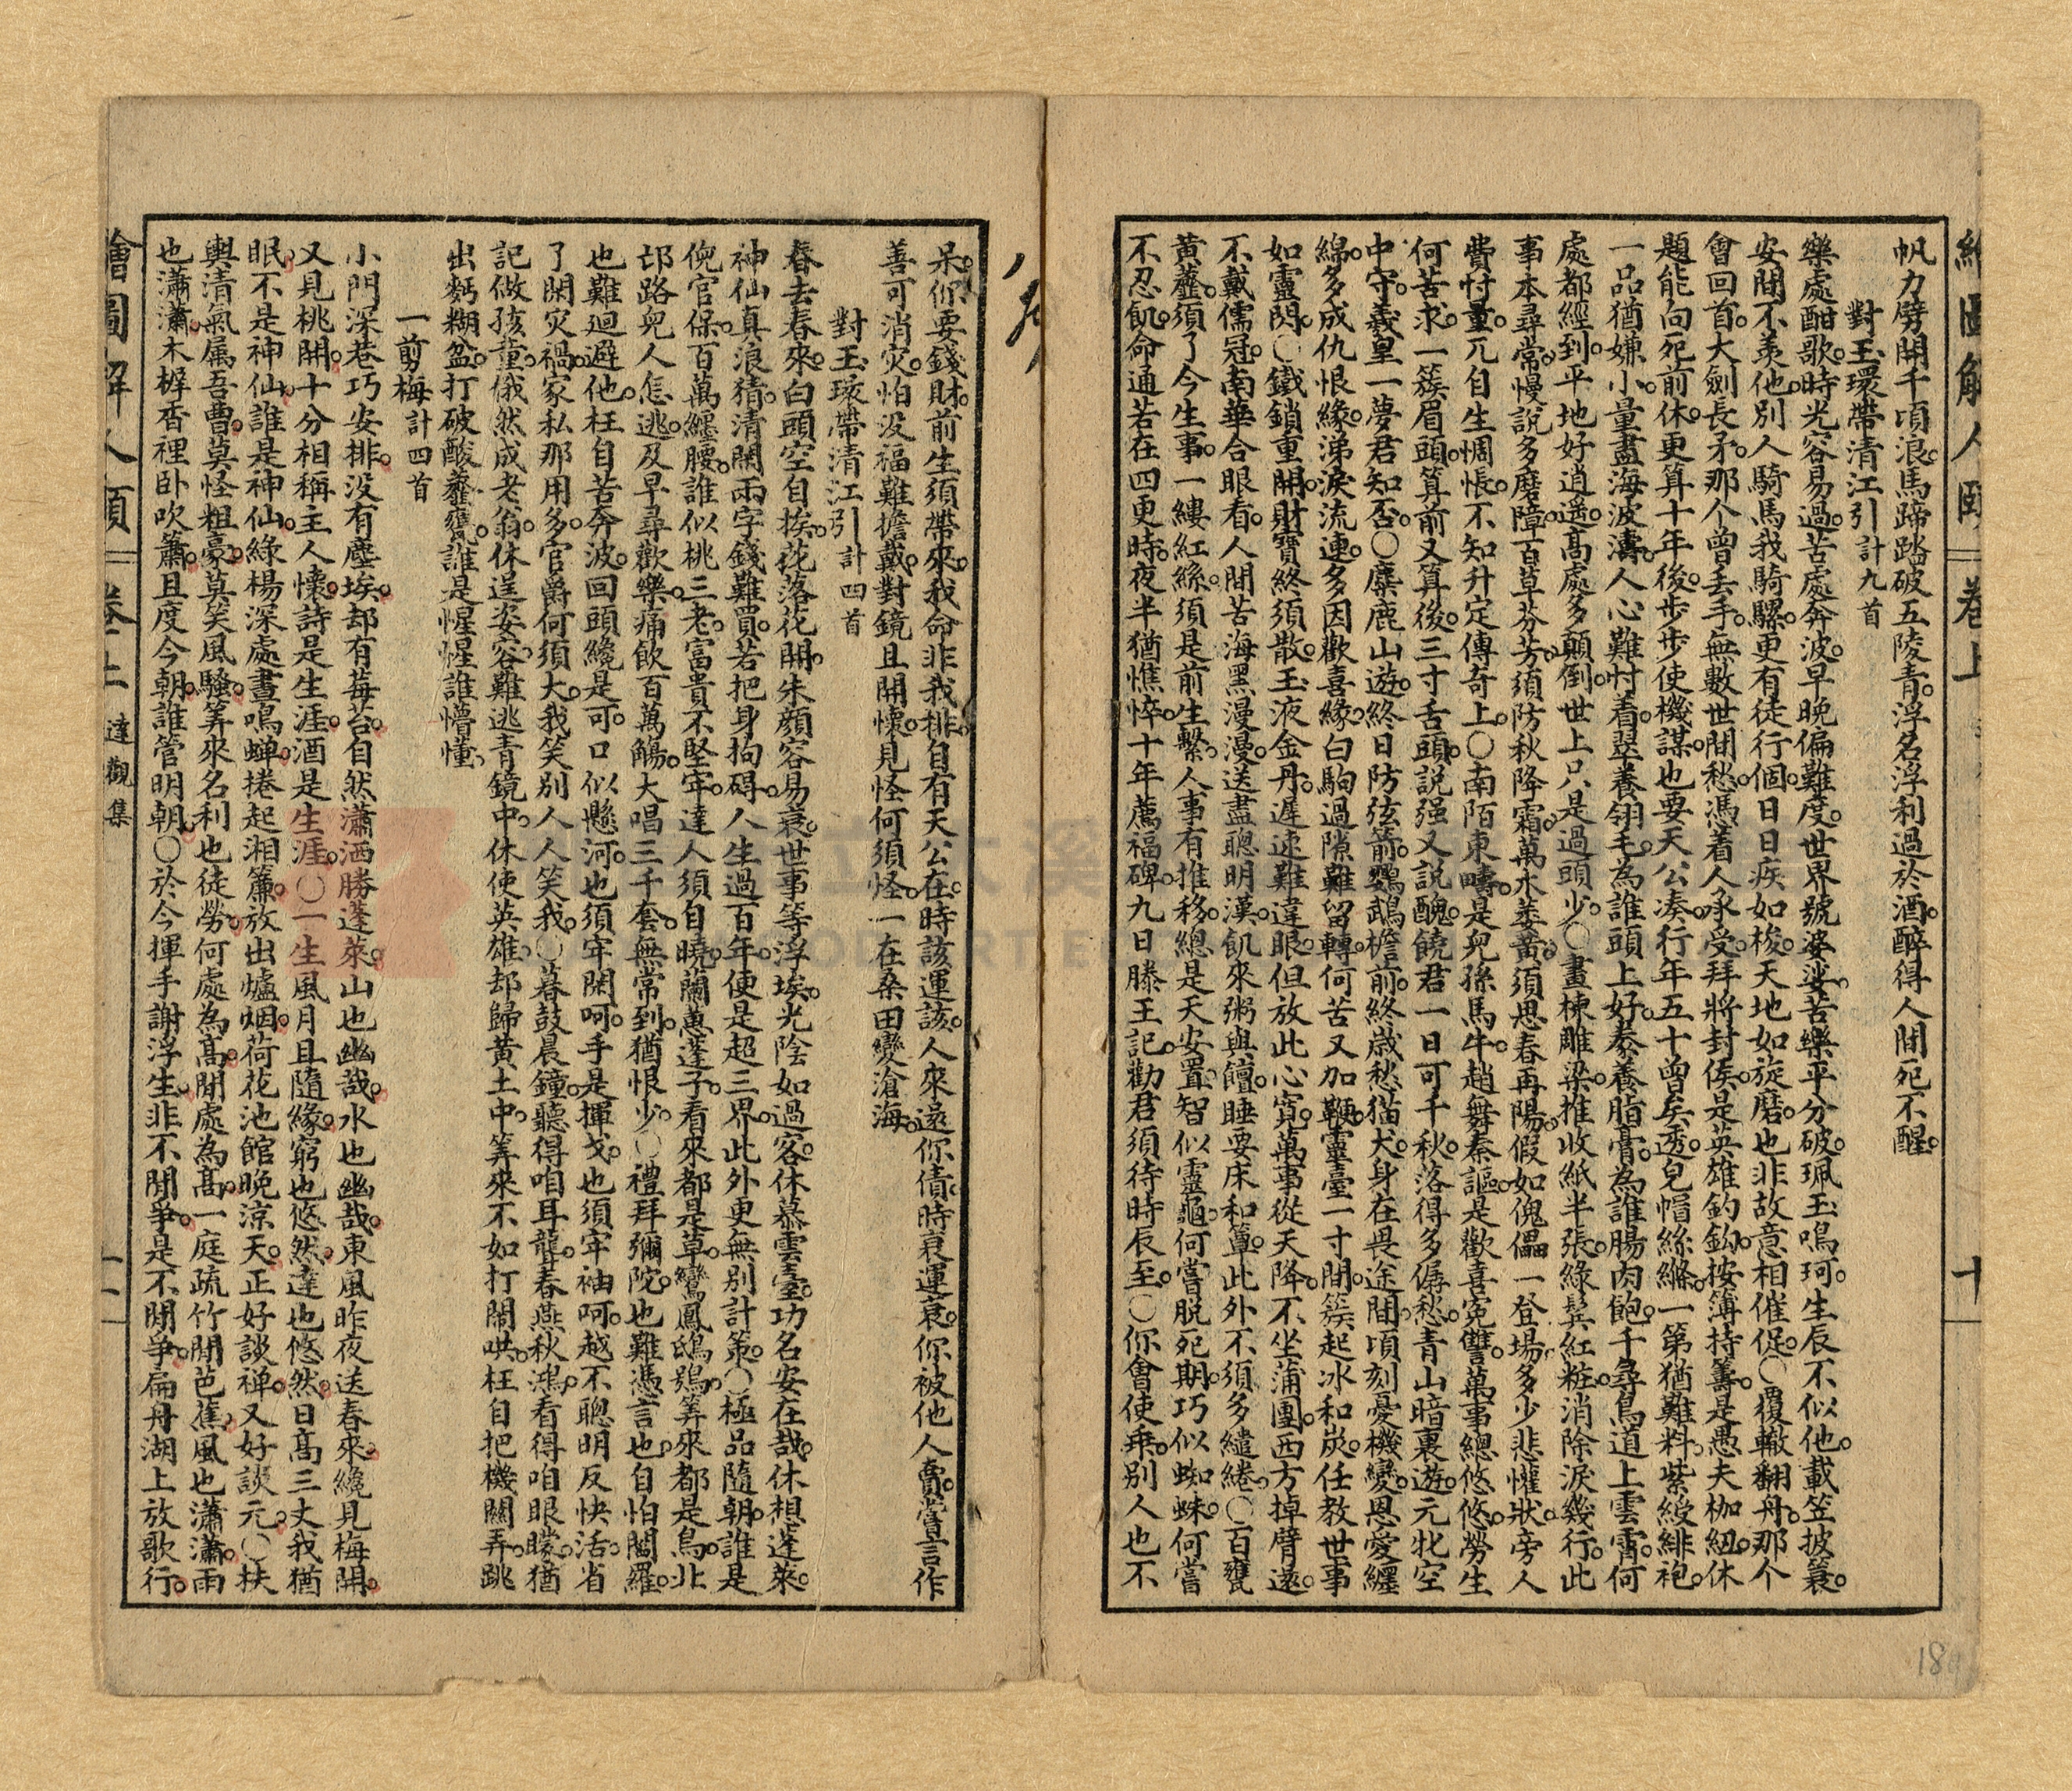 帆力劈開千頃浪。馬蹄踏破五陵青。浮名浮利過於酒。醉得人間死不醒。
對玉環帶清江引計九首
樂處酣歌。時光容易過。苦處奔波。早晚偏難度。世界號婆娑。苦樂平分破。珮玉鳴珂。生辰不似他。載笠披蓑。
安閒不羨他。別人騎馬我騎騾。更有徒行個。日日疾如梭。天地如旋磨。也非故意相催促。○覆轍翻舟。那个
會回首。大劍長矛。那个曾丟手。無數世間愁。憑着人承受。拜將封侯。是英雄釣鈎。按簿持籌。是愚夫枷紐。休
題能向死前休。更算十年後。步步使機謀。也要天公湊。行年五十曾矣。透兒帽絲縧。一第猶難料。紫綬緋袍。
一品猶嫌小。量盡海波濤。人心難忖着。翠養翎毛。為誰頭上好。豢養脂膏。為誰腸肉飽。千尋鳥道上雲霄。何
處都經到。平地好逍遙。高處多顛倒。世上只是過頭少。○畫棟雕梁。推收紙半張。綠鬂紅粧。消除淚幾行。此
事本尋常。慢說多磨障。百草芬芳。須防秋降霜。萬木萎黃。須思春再陽。假如傀儡一登場。多少悲懽狀。旁人
費忖量。兀自生惆悵。不知升定傳奇上。○南陌東疇。是兒孫馬牛。趙舞秦謳。是歡喜寃讐。萬事總悠悠。勞生
何苦求。一簇眉頭。算前又算後。三寸舌頭。說强又說醜。饒君一日可千秋。落得多僝愁。青山暗裏遊。元牝空
中守。羲皇一夢君知否。○麋鹿山遊。終日防弦箭。鸚鵡檐前。終歲愁猫犬。身在畏途間。頃刻憂機變。恩愛纒
綿。多成仇恨緣。涕淚流連。多因歡喜緣。白駒過隙難留轉。何苦又加鞭。靈臺一寸間。簇起冰和炭。任教世事
如靈閃。○鐵鎖重開。財寶終須散。玉液金丹。遲速難違眼。但放此心寬。萬事從天降。不坐蒲團。西方掉臂遠。
不戴儒冠。南華合眼看。人間苦海黑漫漫。送盡聰明漢。飢來粥與饘。睡要床和簟。此外不須多繾綣。○百甕
黃虀。須了今生事。一縷紅絲。須是前生繫。人事有推移。總是天安置。智似靈龜。何嘗脱死期。巧似蜘蛛。何嘗
不忍飢。命通若在四更時。夜半猶憔悴。十年薦福碑。九日滕王記。勸君須待時辰至。○你會使乘。別人也不
呆。你要錢財。前生須帶來。我命非我排。自有天公在。時該運該。人來還你債。時衰運衰。你被他人賣。嘗言作
善可消灾。怕没福難擔戴。對鏡且開懷。見怪何須怪。一在桑田變滄海。
對玉環帶清江引計四首
春去春來。白頭空自挨。花落花開。朱顔容易衰。世事等浮埃。光陰如過客。休慕雲臺。功名安在哉。休想蓬萊。
神仙真浪猜。清閒兩字錢難買。若把身拘碍。人生過百年。便是超三界。此外更無別計策。○極品隨朝。誰是
倪官保。百萬纒腰。誰似桃三老。富貴不堅牢。達人須自曉。蘭蕙蓬子。看來都是草。鸞鳳鴟鴞。筭來都是鳥。北
邙路兒人怎逃。及早尋歡樂。痛飲百萬觴。大唱三千套。無常到。猶恨少。○禮拜彌陀。也難憑言也。自怕閻羅。
也難迴避他。枉自苦奔波。回頭纔是可。口似懸河。也須牢閑呵。手是揮戈。也須牢袖呵。越不聰明反快活。省
了閑灾禍。家私那用多。官爵何須大。我笑別人人笑我。○暮鼓晨鐘。聽得咱耳聾。春燕秋鴻。看得咱眼矇。猶
記做孩童。俄然成老翁。休逞姿容。難逃青鏡中。休使英雄。却歸黃土中。筭來不如打閙哄。枉自把機關弄。跳
出麪糊盆。打破酸虀甕。誰是惺惺誰懵懂。
一剪梅計四首
小門深巷巧安排。没有塵埃。却有莓苔。自然瀟洒勝蓬萊。山也幽哉。水也幽哉。東風昨夜送春來。纔見梅開。
又見桃開。十分相稱主人懷。詩是生涯。酒是生涯。○一生風月且隨緣。窮也悠然。達也悠然。日高三丈我猶
眠。不是神仙。誰是神仙。綠楊深處晝鳴蟬。捲起湘簾。放出爐烟。荷花池館晚涼天。正好談禅。又好談元。○扶
輿清氣属吾曹。莫怪粗豪。莫笑風騷。筭來名利也徒勞。何處為高。閒處為高。一庭疏竹間芭蕉。風也瀟瀟。雨
也瀟瀟。木樨香裡卧吹簫。且度今朝。誰管明朝。○於今揮手謝浮生。非不閒爭。是不閒爭。扁舟湖上放歌行。
繪圖解人頤
卷上
達觀集
十
繪圖解人頤
卷上
十一
18